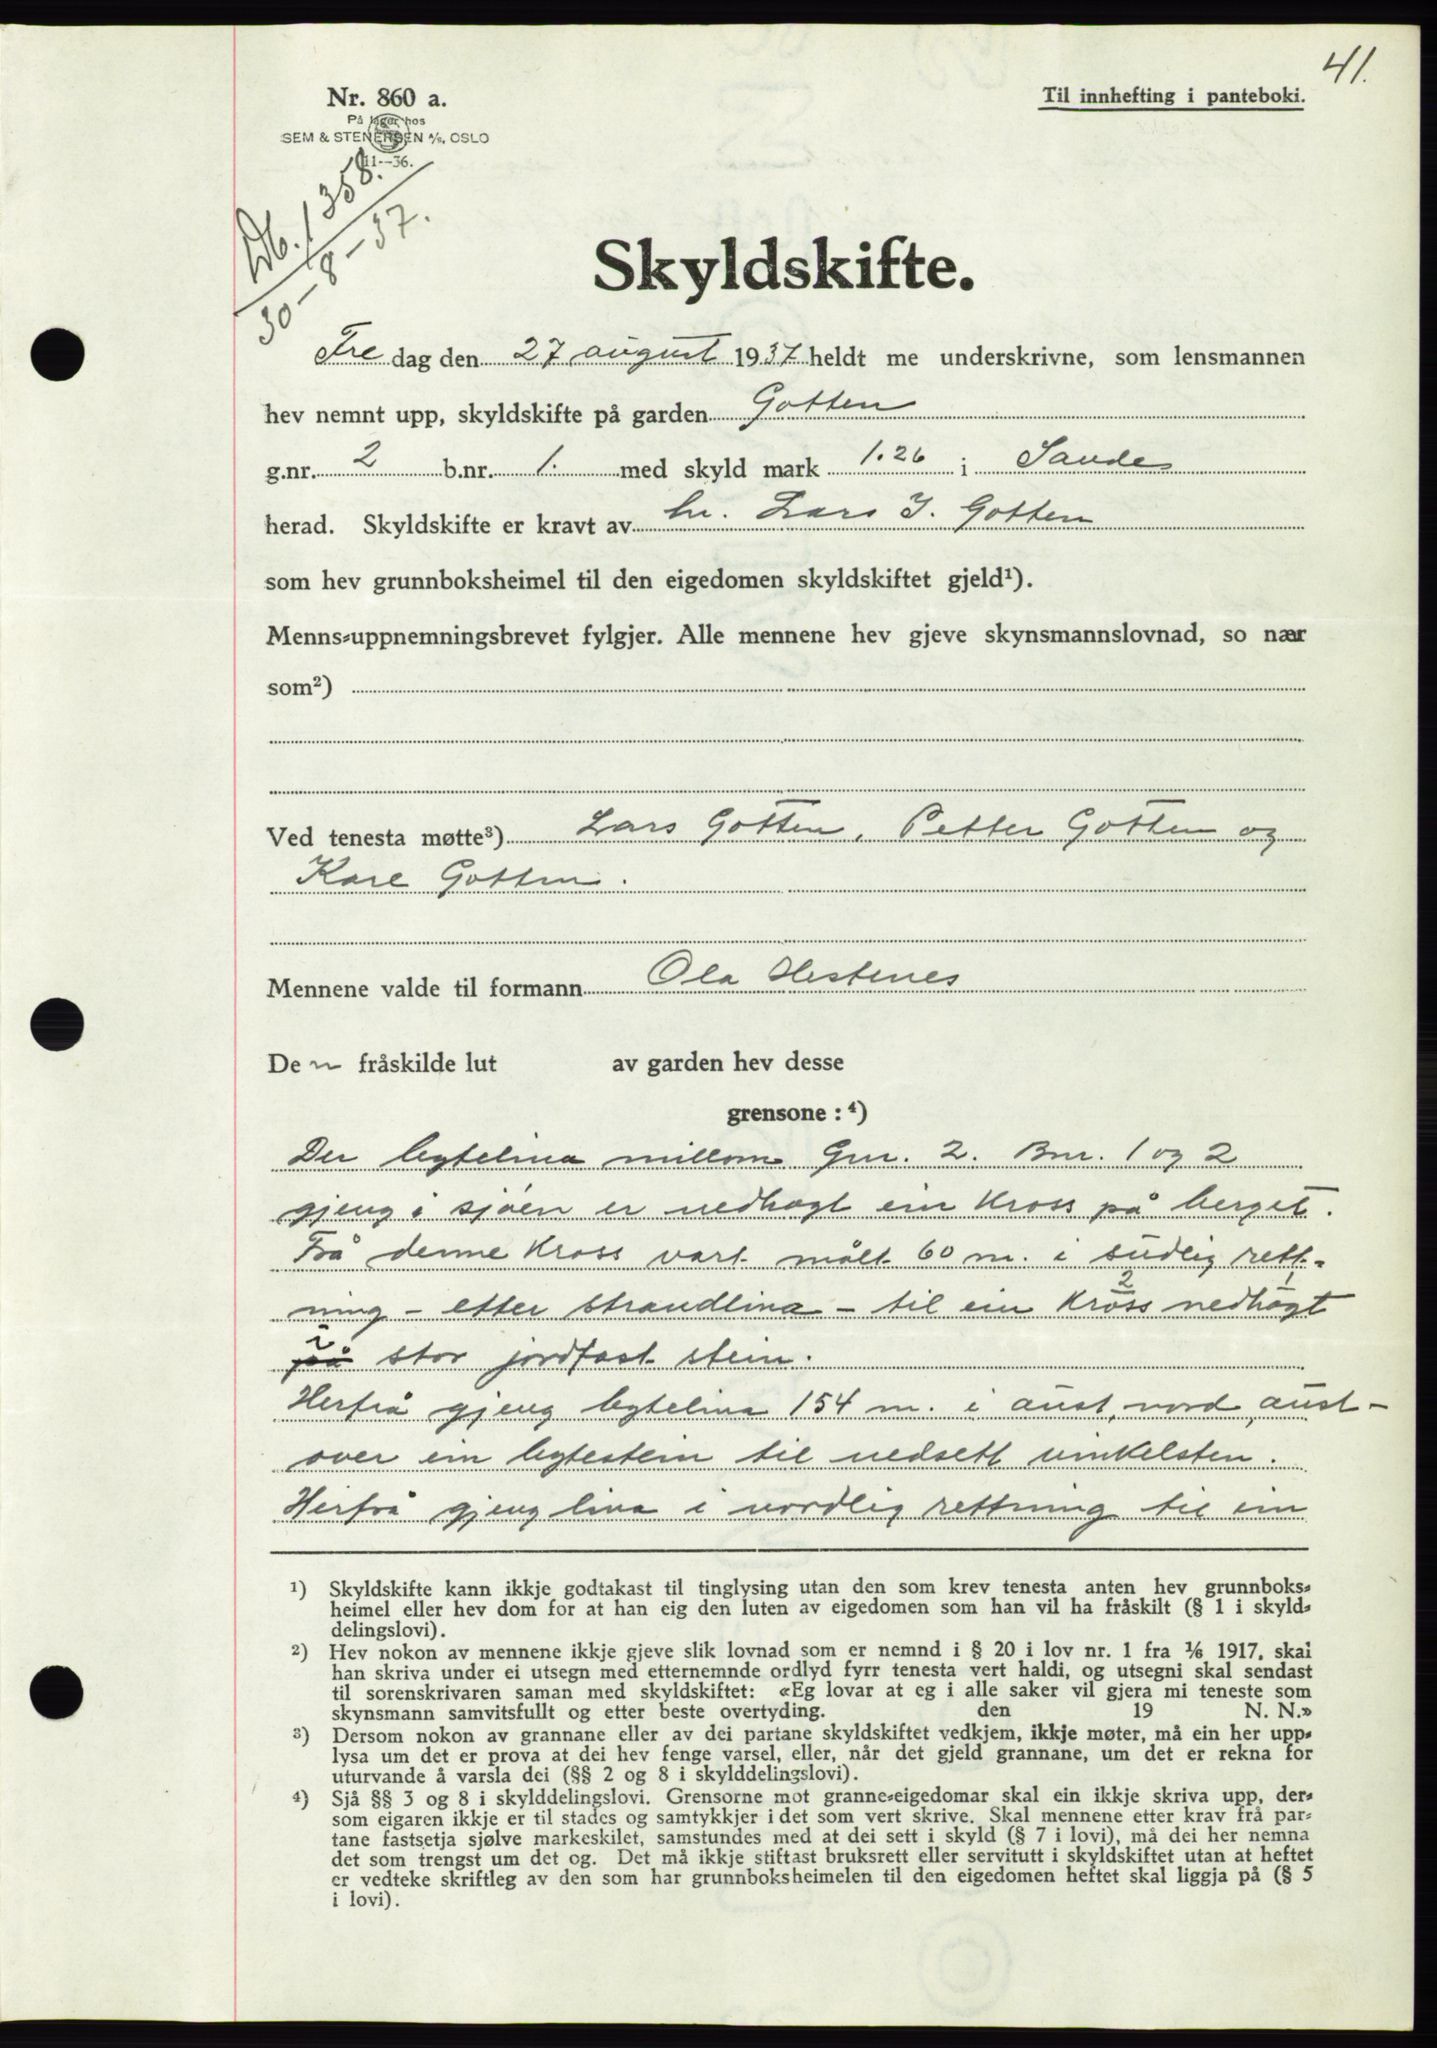 41.
Nr. 860 a.
Til innhefting i panteboki.
På lager hos
SEM & STENERSEN A/S, OSLO
11--36.
Db. 1358.
30-8-37.
Skyldskifte.
Fre dag den 27 august 1937 heldt me underskrivne, som lensmannen
hev nemnt upp, skyldskifte på garden Gotten
g.nr. 2 b.nr. 1. med skyld mark 1.26 i Sande
herad. Skyldskifte er kravt av hr. Lars J. Gotten
som hev grunnboksheimel til den eigedomen skyldskiftet gjeld¹).
Menns=uppnemningsbrevet fylgjer. Alle mennene hev gjeve skynsmannslovnad, so nær
som²)
Ved tenesta møtte³) Lars Gotten, Petter Gotten og
Kare Gotten.
Mennene valde til formann Ola Hestenes
De n fråskilde lut av garden hev desse
grensone :⁴)
Der bytelina millom Gnr. 2. Bnr. 1 og 2
gjeng i sjöen er nedhogt ein Kross på berget.
Frå denne Kross vart målt 60 m. i sudlig rett-
ning - etter strandlina - til ein Kross 2 nedhogt 1
på i stor jordfast stein.
Herfrå gjeng bytelina 154 m. i aust, nord aust -
over ein bytestein til nedsett vinkelsten.
Herfrå gjeng lina i nordlig rettning til ein
¹) Skyldskifte kann ikkje godtakast til tinglysing utan den som krev tenesta anten hev grunnboks=
heimel eller hev dom for at han eig den luten av eigedomen som han vil ha fråskilt (§ 1 i skyld=
delingslovi).
²) Hev nokon av mennene ikkje gjeve slik lovnad som er nemnd i § 20 i lov nr. 1 fra 1/6 1917, skal
han skriva under ei utsegn med etternemnde ordlyd fyrr tenesta vert haldi, og utsegni skal sendast
til sorenskrivaren saman med skyldskiftet: «Eg lovar at eg i alle saker vil gjera mi teneste som
skynsmann samvitsfullt og etter beste overtyding. den 19 N. N.»
³) Dersom nokon av grannane eller av dei partane skyldskiftet vedkjem, ikkje møter, må ein her upp=
lysa um det er prova at dei hev fenge varsel, eller, når det gjeld grannane, um det er rekna for
uturvande å varsla dei (§§ 2 og 8 i skylddelingslovi).
⁴) Sjå §§ 3 og 8 i skylddelingslovi. Grensorne mot granne=eigedomar skal ein ikkje skriva upp, der=
som eigaren ikkje er til stades og samtykkjer i det som vert skrive. Skal mennene etter krav frå par=
tane fastsetja sjølve markeskilet, samstundes med at dei sett i skyld (§ 7 i lovi), må dei her nemna
det som trengst um det og. Det må ikkje stiftast bruksrett eller servitutt i skyldskiftet utan at heftet
er vedteke skriftleg av den som har grunnboksheimelen til den eigedomen heftet skal liggja på (§ 5
i lovi).